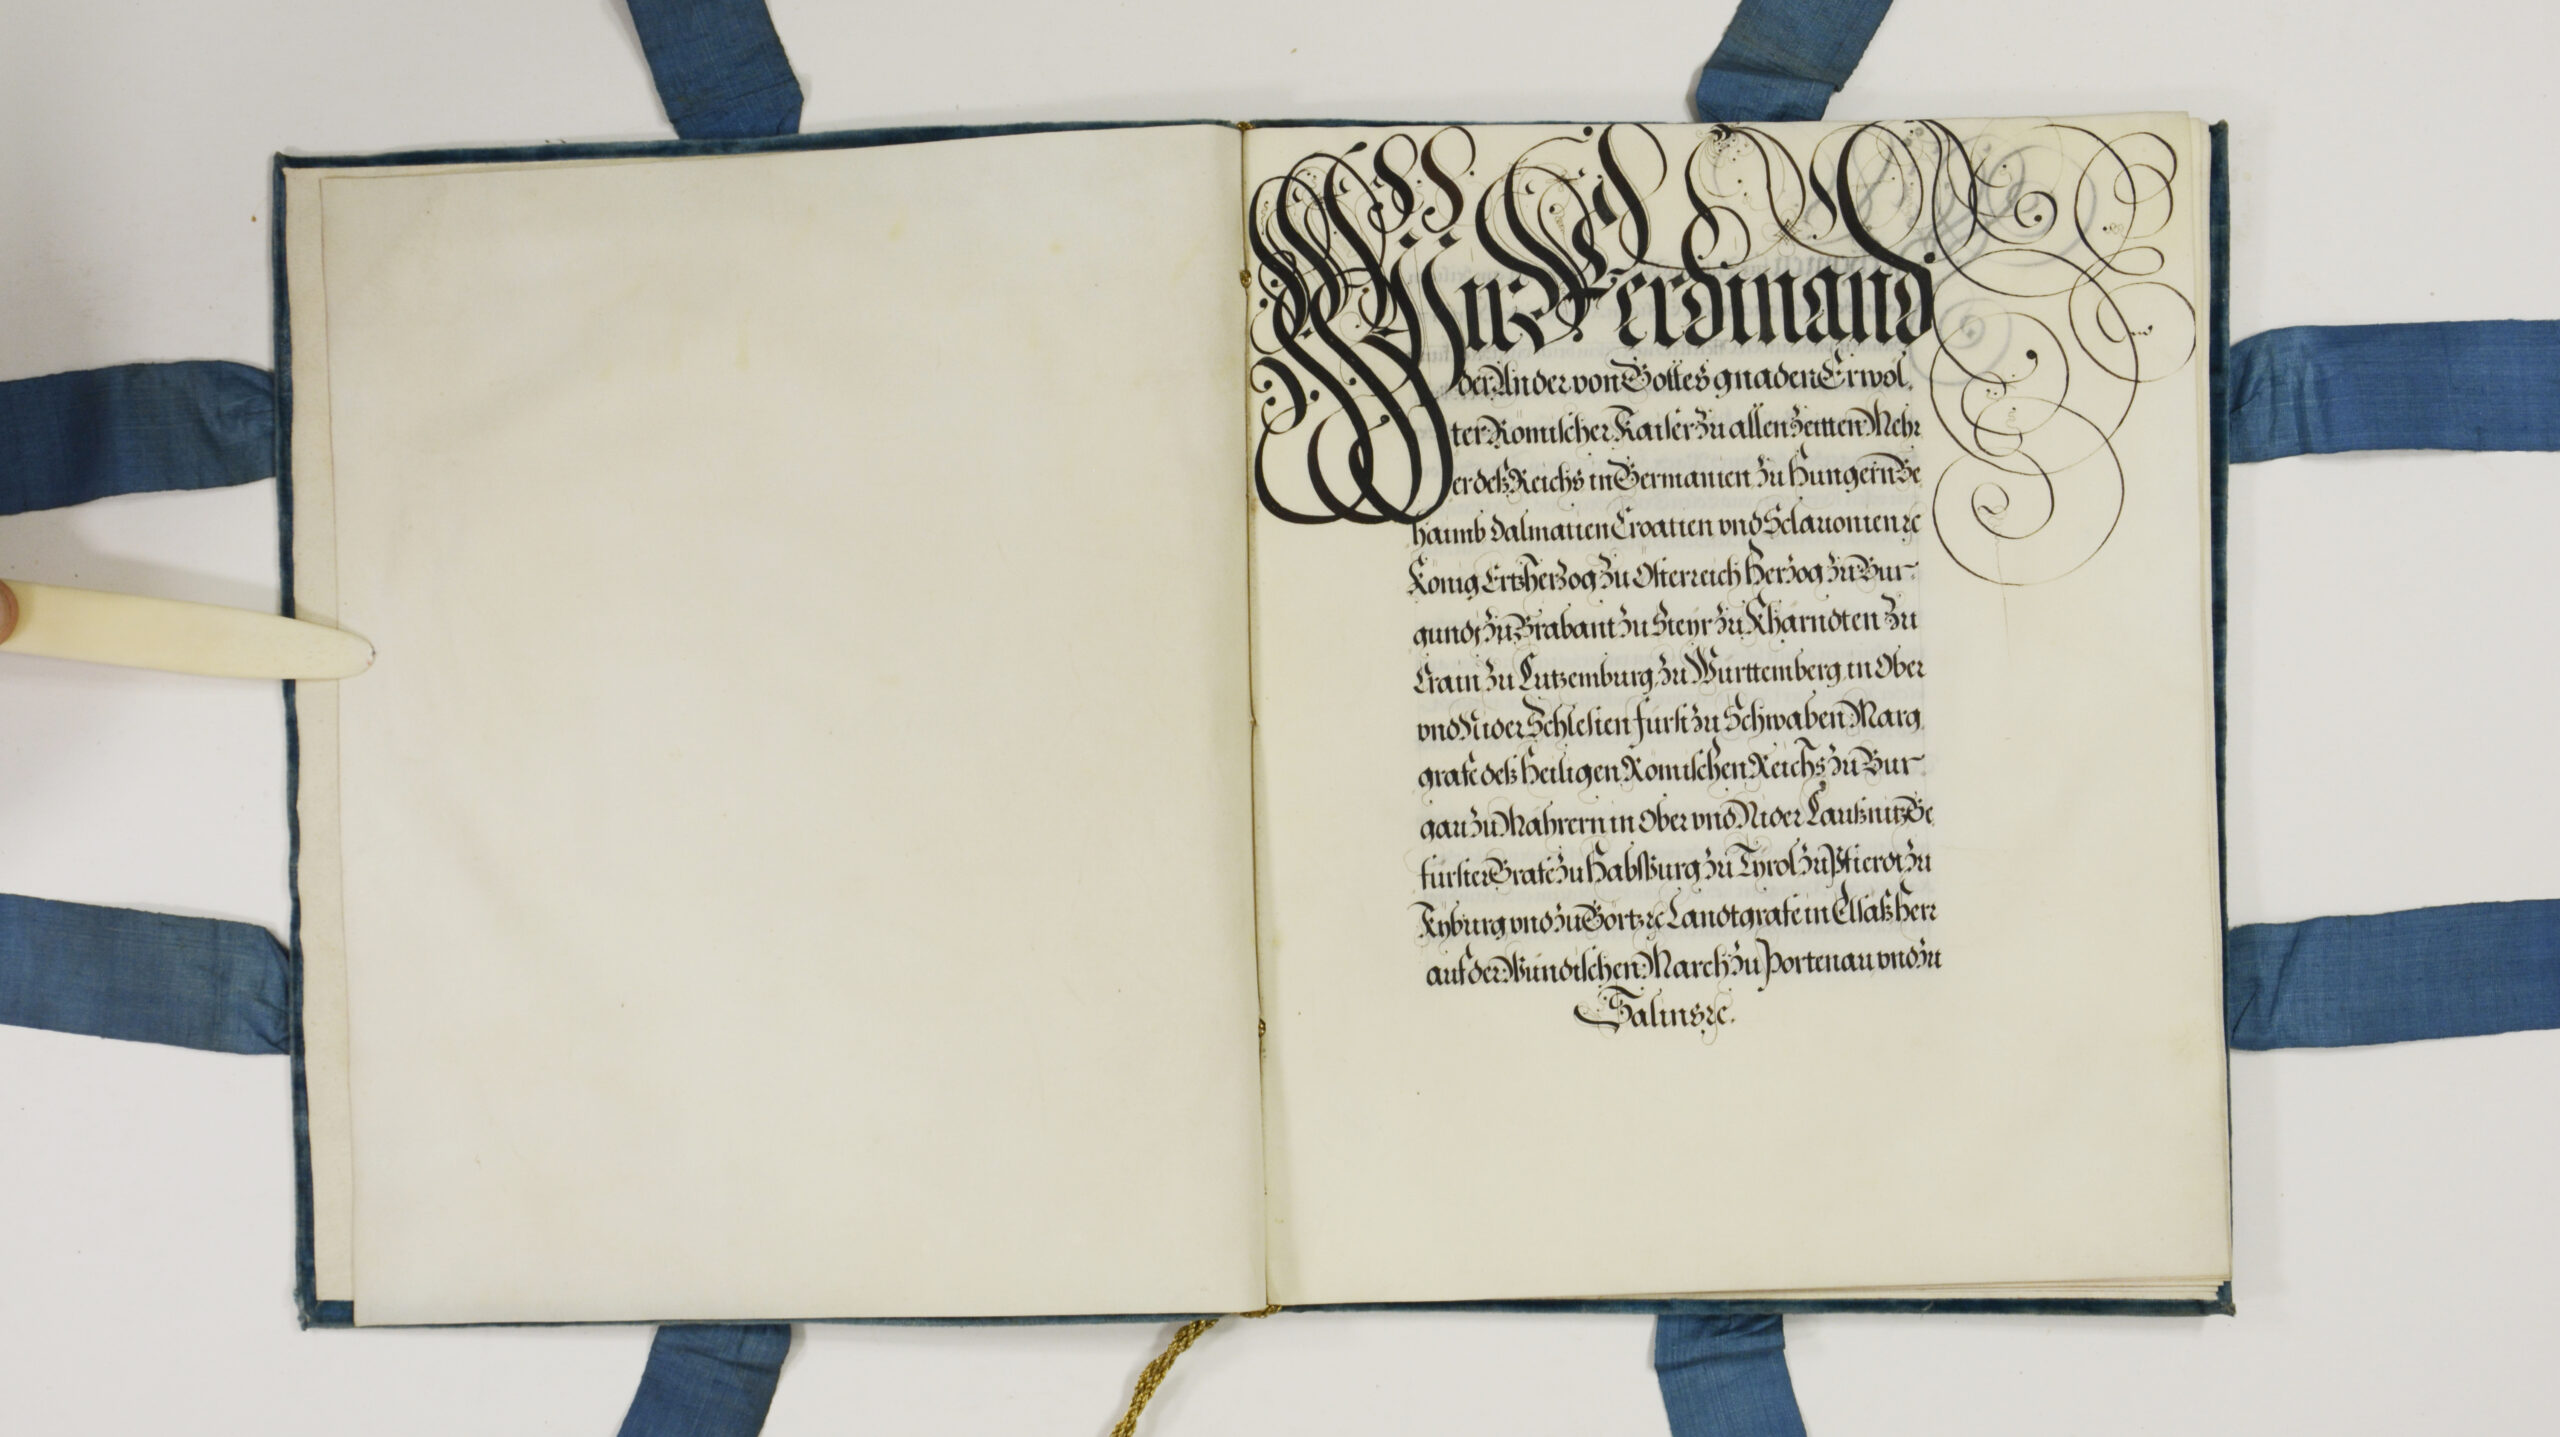 Wir Ferdinand
der Ander von Gottes gnaden Erwöl,
ter Römischer Kaiser zu allen Zeitten Mehr
er deß Reichs in Germanien zu Hungern Be
haimb Dalmatien Croatien vnd Sclauonien ꝛc
König Ertzherzog zu Österreich Herzog zu Bur-
gundt zu Brabant zu Steyr zu Khärndten zu
Crain zu Lutzemburg zu Württemberg in Ober
vnd Nider Schlesien Fürst zu Schwaben Marg
grafe deß Heiligen Römischen Reichs zu Bur-
gau zu Mährern in Ober vnd Nider Laußnitz Ge
fürster Grafe zu Habsburg zu Tyrol zu Pfierdt zu
Kyburg vnd zu Görtz ꝛc Landtgrafe in Elsaß Herr
auf der Windischen March zu Portenau vnd zu
Salins ꝛc.